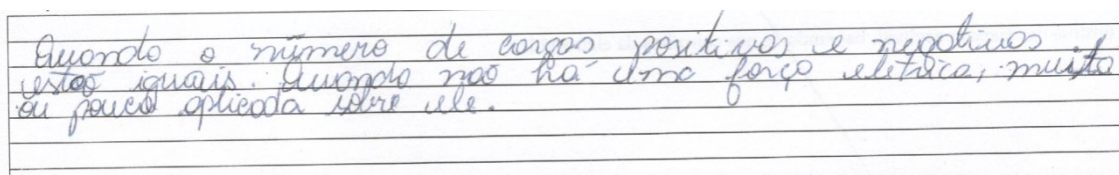 Quando o número de cargas positivas e negativas
estão iguais. Quando não há uma força elétrica, muita
ou pouca aplicada sobre ele.